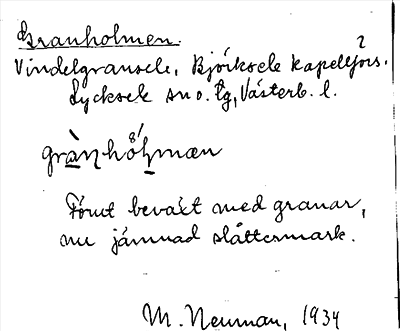 Granholmen.
Vindelgransele, Björksele kapellförs.
Lycksele sn o. tg, Västerb. l.
Förut beväxt med granar,
nu jämnad slåttermark.
M. Neuman, 1934